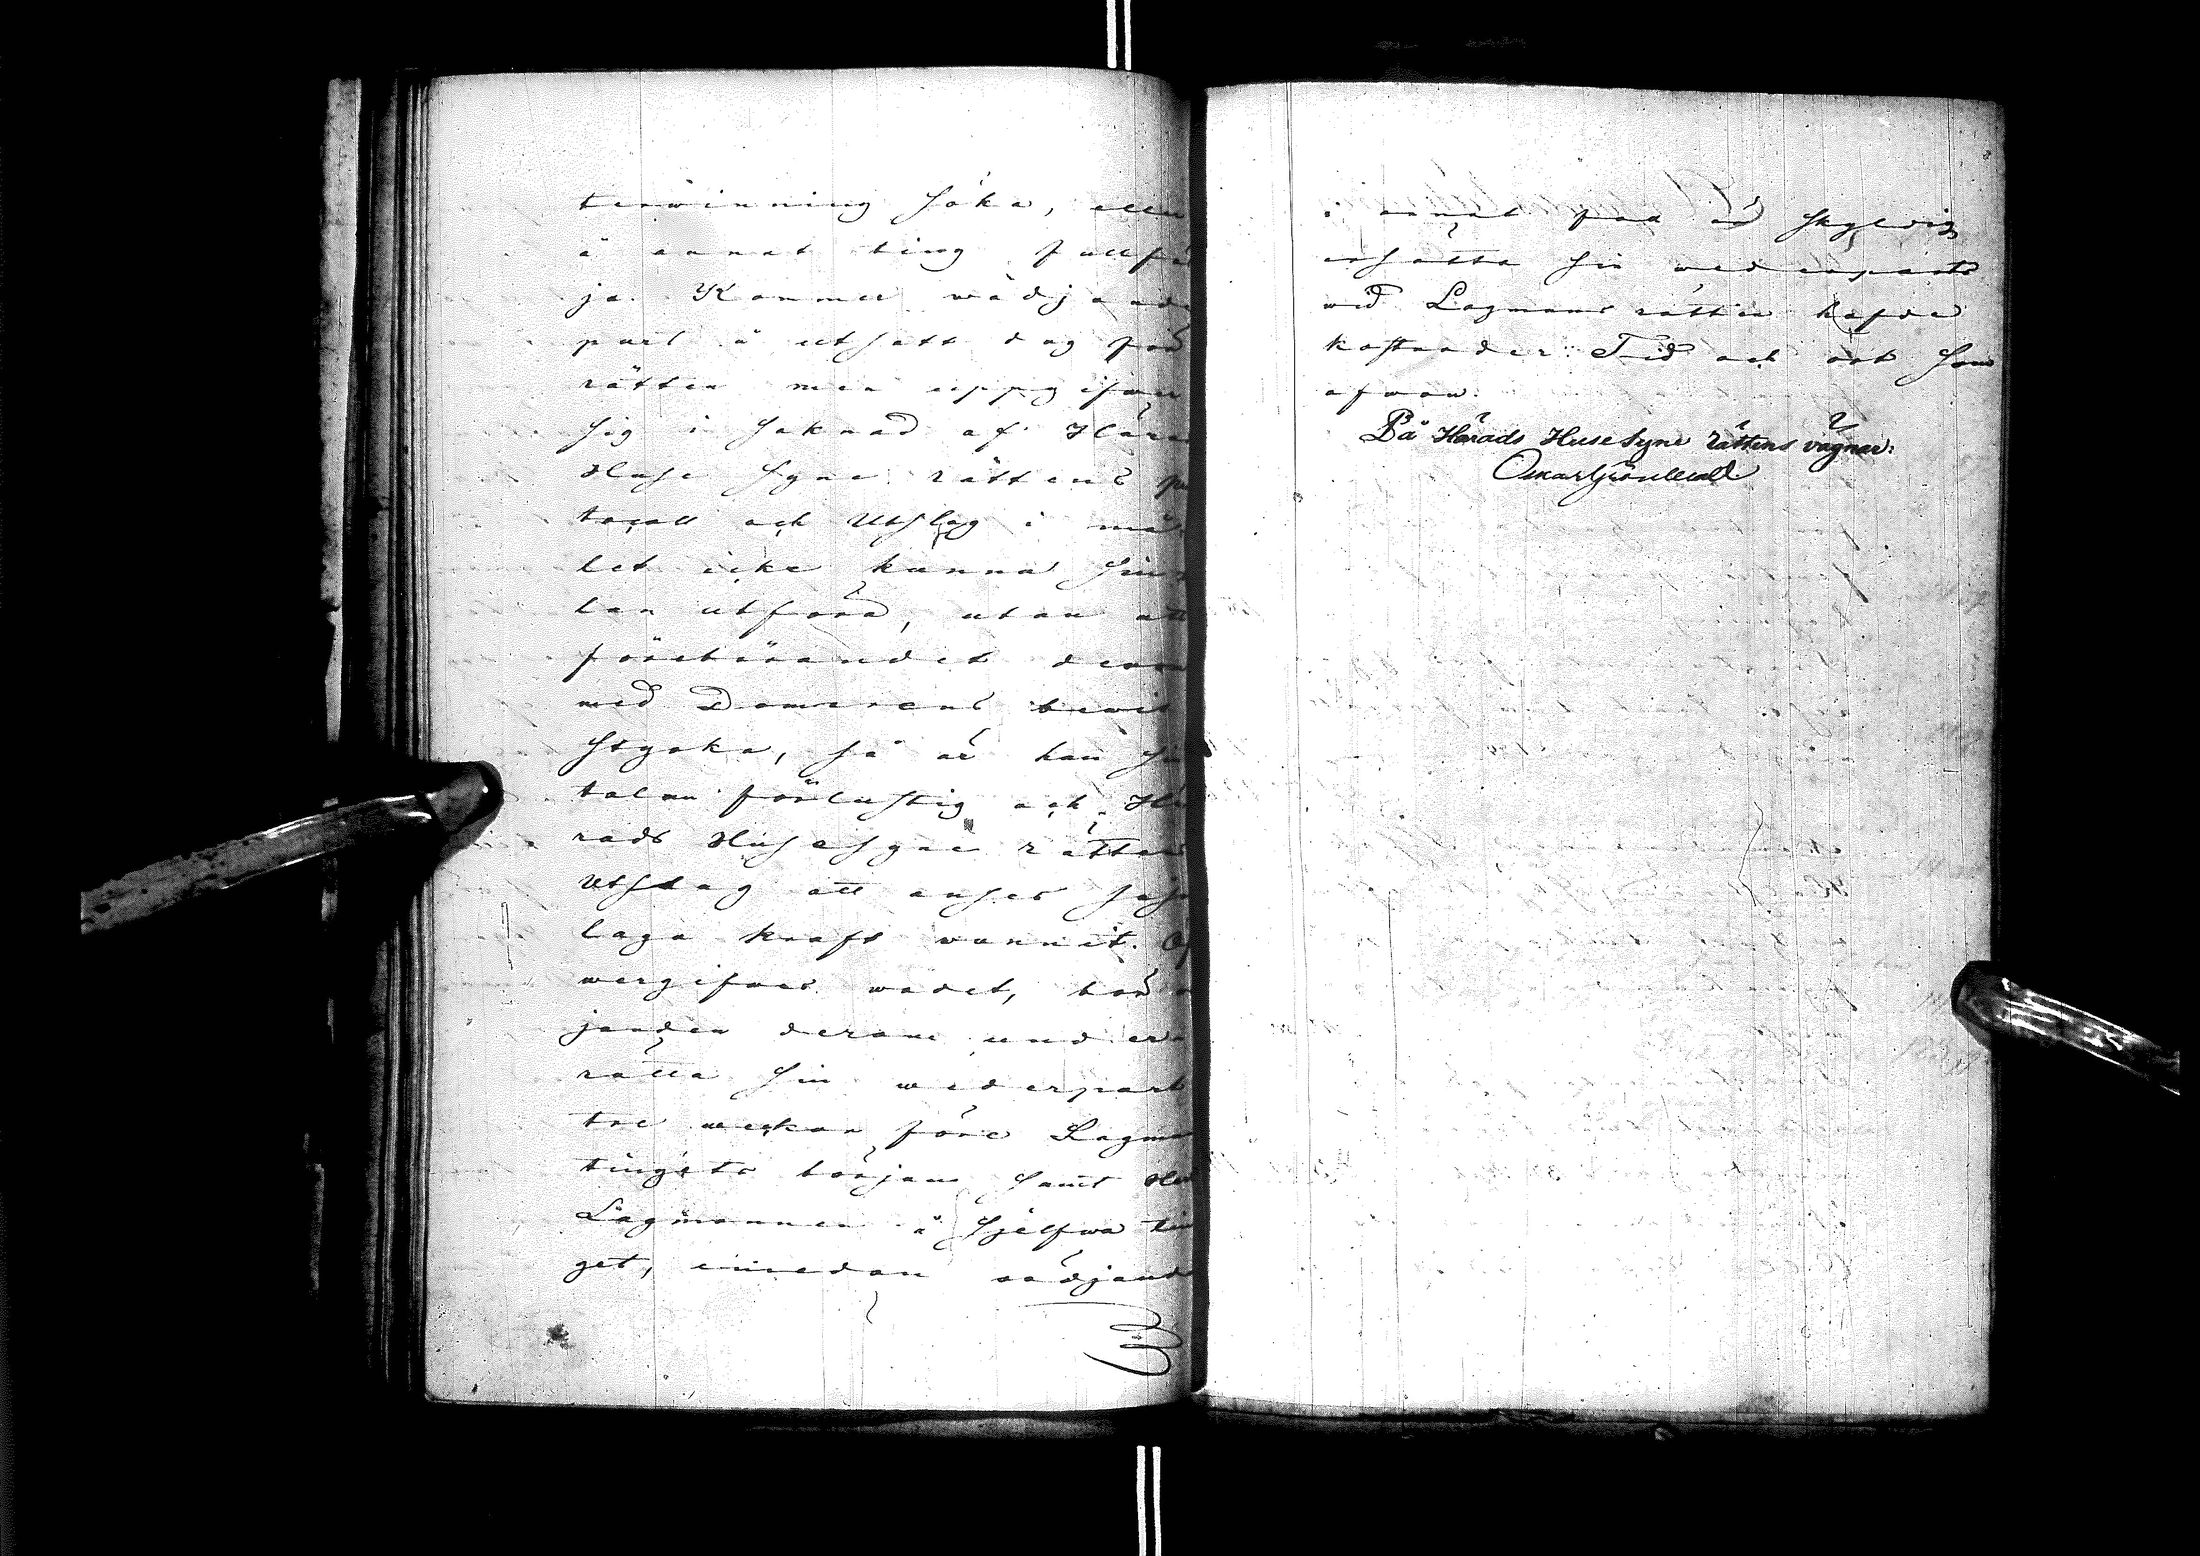 terwinning söka, eller
å annat ting fullföl
ja. Kommer wädjande
part å utsatt dag för
rätten men uppgifwer
sig i saknad af Hära
Huse Syne rättens pro
tocoll och Utslag i må
let icke kunna sin ta
lan utföra, utan att
förebärandet derom
med Domarens bewis
styrka, så är han sin
talan förlustig och Hä
rads Husesyne rättens
Utslag att anses såsom
laga kraft wunnit. Öf
wergifwes wadet, bör
janden derom under
rätta sin wederpart
tre weckor före Lagmans
tingets början samt
Lagmannen å sjelfwa tin
get, emedan wädjande
i annat fall är skyldig
ersätta sin wederparts
wid Lagmans rätten hafde
kostnader. Tid och ort som
ofwan.
På Härads HuseSyne rättens vägnar:
Oskar Grönwall